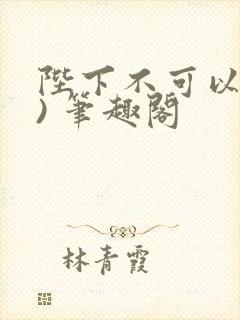 陛下不可以
)筆趣閣
林青霞